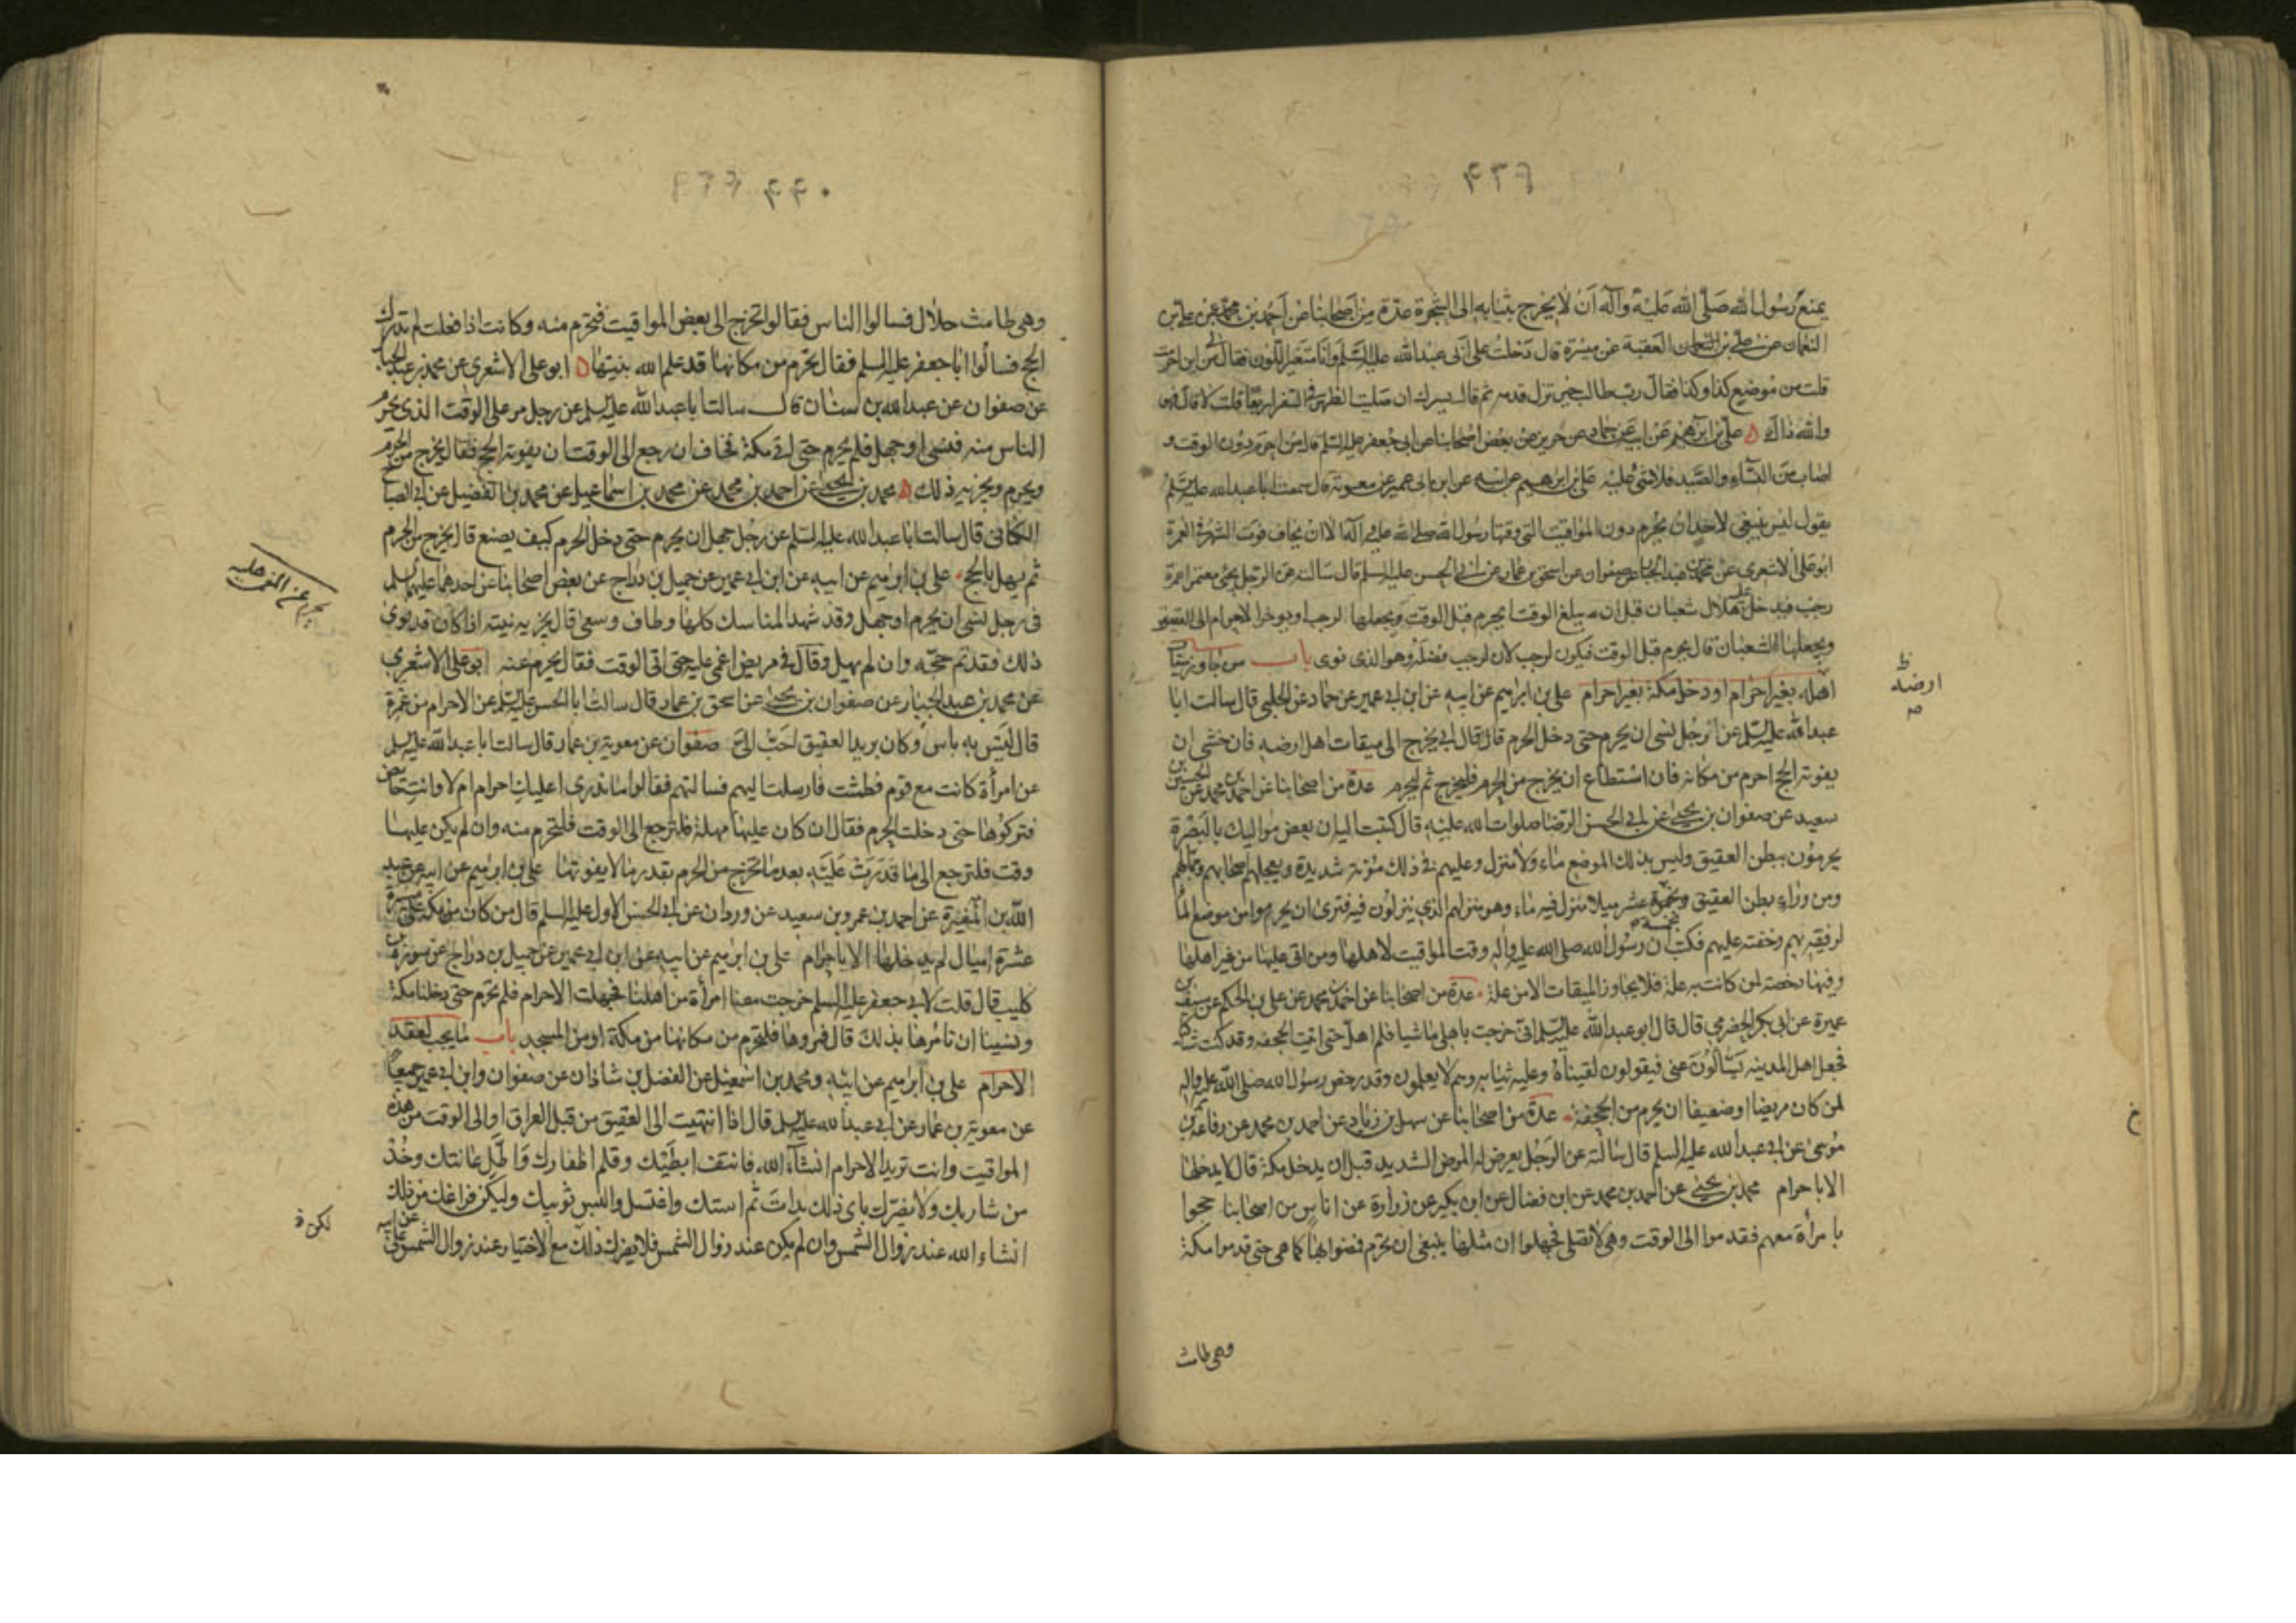 ۴۳۹
يمنع رسول الله صلى الله عليه وآله ان لا يخرج بثيابه الى الشجرة عدة من اصحابنا عن احمد بن محمد عن علي بن
النعمان عن علي بن النعمان العقبة عن ميسرة قال دخلت على ابي عبد الله عليه السلم وانا متغير اللون فقال لي من اين احرمت
قلت من موضع كذا وكذا فقال رب طالب خير تزل قدمه ثم قال يسرك ان صليت الظهر في السفر اربعا قلت لا قال فهو
والله ذاك علي بن ابرهيم عن ابيه عن حماد عن حريز عن بعض اصحابنا عن ابي جعفر عليه السلم قال من احرم دون الوقت و
اصاب من النساء والصيد فلا شئ عليه علي بن ابرهيم عن ابيه عن ابن ابي عمير عن معوية قال سمعت ابا عبد الله عليه السلم
يقول ليس ينبغي لاحد ان يحرم دون المواقيت التي وقتها رسول الله صلى الله عليه وآله الا ان يخاف فوت الشهر في العمرة
ابو علي الاشعري عن محمد بن عبد الجبار عن صفوان عن اسحق بن عمار عن ابي الحسن عليه السلم قال سالته عن الرجل يجئ معتمرا عمرة
رجب فيدخل عليه هلال شعبان قبل ان يبلغ الوقت ايحرم قبل الوقت ويجعلها لرجب او يوخر الاحرام الى العقيق
ويجعلها لشعبان قال يحرم قبل الوقت فيكون لرجب لان لرجب فضله وهو الذي نوى باب من جاوز ميقات
اهله بغير احرام او دخل مكة بغير احرام علي بن ابرهيم عن ابيه عن ابن ابي عمير عن حماد عن الحلبي قال سالت ابا
عبد الله عليه السلم عن رجل نسى ان يحرم حتى دخل الحرم قال قال ابي يخرج الى ميقات اهل ارضه فان خشي ان
يفوته الحج احرم من مكانه فان استطاع ان يخرج من الحرم فليخرج ثم ليحرم عدة من اصحابنا عن احمد بن محمد عن الحسين بن
سعيد عن صفوان بن يحيى عن ابي الحسن الرضا صلوات الله عليه قال كتبت اليه ان بعض مواليك بالبصرة
يحرمون ببطن العقيق وليس بذلك الموضع ماء ولا منزل وعليهم في ذلك مؤنة شديدة ويعجلهم اصحابهم وجمالهم
ومن وراء بطن العقيق بخمسة عشر ميلا منزل فيه ماء وهو منزلهم الذي ينزلون فيه فترى ان يحرموا من موضع الماء
لرفقه بهم وخفته عليهم فكتب ان رسول الله صلى الله عليه واله وقت المواقيت لاهلها ومن اتى عليها من غير اهلها
وفيها رخصة لمن كانت به علة فلا يجاوز الميقات الا من علة عدة من اصحابنا عن احمد بن محمد عن علي بن الحكم عن سيف بن
عميرة عن ابي بكر الحضرمي قال قال ابو عبد الله عليه السلم اني خرجت باهلي ماشيا فلم اهل حتى اتيت الجحفة وقد كنت شاكيا
فجعل اهل المدينة يسألون عني فيقولون لقيناه وعليه ثيابه وهم لا يعلمون وقد رخص رسول الله صلى الله عليه واله
لمن كان مريضا او ضعيفا ان يحرم من الجحفة عدة من اصحابنا عن سهل بن زياد عن احمد بن محمد عن رفاعة بن
موسى عن ابي عبد الله عليه السلم قال سالته عن الرجل يعرض له المرض الشديد قبل ان يدخل مكة قال لا يدخلها
الا باحرام محمد بن يحيى عن احمد بن محمد عن ابن فضال عن ابن بكير عن زرارة عن اناس من اصحابنا حجوا
بامرأة معهم فقدموا الى الوقت وهي لا تصلي فجهلوا ان مثلها ينبغي ان تحرم فمضوا بها كما هي حتى قدموا مكة
وهي طامث
ظ
ارضه
خ
۴۴۰
وهي طامث حلال فسالوا الناس فقالوا تخرج الى بعض المواقيت فتحرم منه وكانت اذا فعلت لم تدرك
الحج فسالوا ابا جعفر عليه السلم فقال تحرم من مكانها قد علم الله بنيتها ابو علي الاشعري عن محمد بن عبد الجبار
عن صفوان عن عبد الله بن سنان قال سالت ابا عبد الله عليه السلم عن رجل مر على الوقت الذي يحرم
الناس منه فنسى او جهل فلم يحرم حتى اتى مكة فخاف ان رجع الى الوقت ان يفوته الحج فقال يخرج من الحرم
ويحرم ويجزيه ذلك محمد بن يحيى عن احمد بن محمد عن محمد بن اسماعيل عن محمد بن الفضيل عن ابي الصباح
الكناني قال سالت ابا عبد الله عليه السلم عن رجل جهل ان يحرم حتى دخل الحرم كيف يصنع قال يخرج من الحرم
ثم يهل بالحج علي بن ابرهيم عن ابيه عن ابن ابي عمير عن جميل بن دراج عن بعض اصحابنا عن احدهما عليهما السلم
في رجل نسى ان يحرم او جهل وقد شهد المناسك كلها وطاف وسعى قال يجزيه نيته اذا كان قد نوى
ذلك فقد تم حجه وان لم يهل وقال في مريض اغمي عليه حتى اتى الوقت فقال يحرم عنه ابو علي الاشعري
عن محمد بن عبد الجبار عن صفوان بن يحيى عن اسحق بن عمار قال سالت ابا الحسن عليه السلم عن الاحرام من غمرة
قال ليس به باس وكان بريد العقيق احب الي صفوان عن معوية بن عمار قال سالت ابا عبد الله عليه السلم
عن امرأة كانت مع قوم فطمثت فارسلت اليهم فسالتهم فقالوا ما ندري اعليك احرام ام لا وانت حائض
فتركوها حتى دخلت الحرم فقال ان كان عليها مهلة فلترجع الى الوقت فلتحرم منه وان لم يكن عليها
وقت فلترجع الى ما قدرت عليه بعد ما تخرج من الحرم بقدر ما لا يفوتها علي بن ابرهيم عن ابيه عن عبد
الله بن المغيرة عن احمد بن عمرو بن سعيد عن وردان عن ابي الحسن الاول عليه السلم قال من كان من مكة على مسيرة
عشرة اميال لم يدخلها الا باحرام علي بن ابرهيم عن ابيه عن ابن ابي عمير عن جميل بن دراج عن سورة بن
كليب قال قلت لابي جعفر عليه السلم خرجت معنا امرأة من اهلنا فجهلت الاحرام فلم تحرم حتى دخلنا مكة
ونسينا ان نامرها بذلك قال فمروها فلتحرم من مكانها من مكة او من المسجد باب ما يجب لعقد
الاحرام علي بن ابرهيم عن ابيه ومحمد بن اسمعيل عن الفضل بن شاذان عن صفوان وابن ابي عمير جميعا
عن معوية بن عمار عن ابي عبد الله عليه السلم قال اذا انتهيت الى العقيق من قبل العراق او الى الوقت من هذه
المواقيت وانت تريد الاحرام انشاء الله فانتف ابطيك وقلم اظفارك واطل عانتك وخذ
من شاربك ولا يضرك باي ذلك بدات ثم استك واغتسل والبس ثوبيك وليكن فراغك من ذلك
انشاء الله عند زوال الشمس وان لم يكن عند زوال الشمس فلا يضرك ذلك مع الاختيار عند زوال الشمس علي عن ابيه